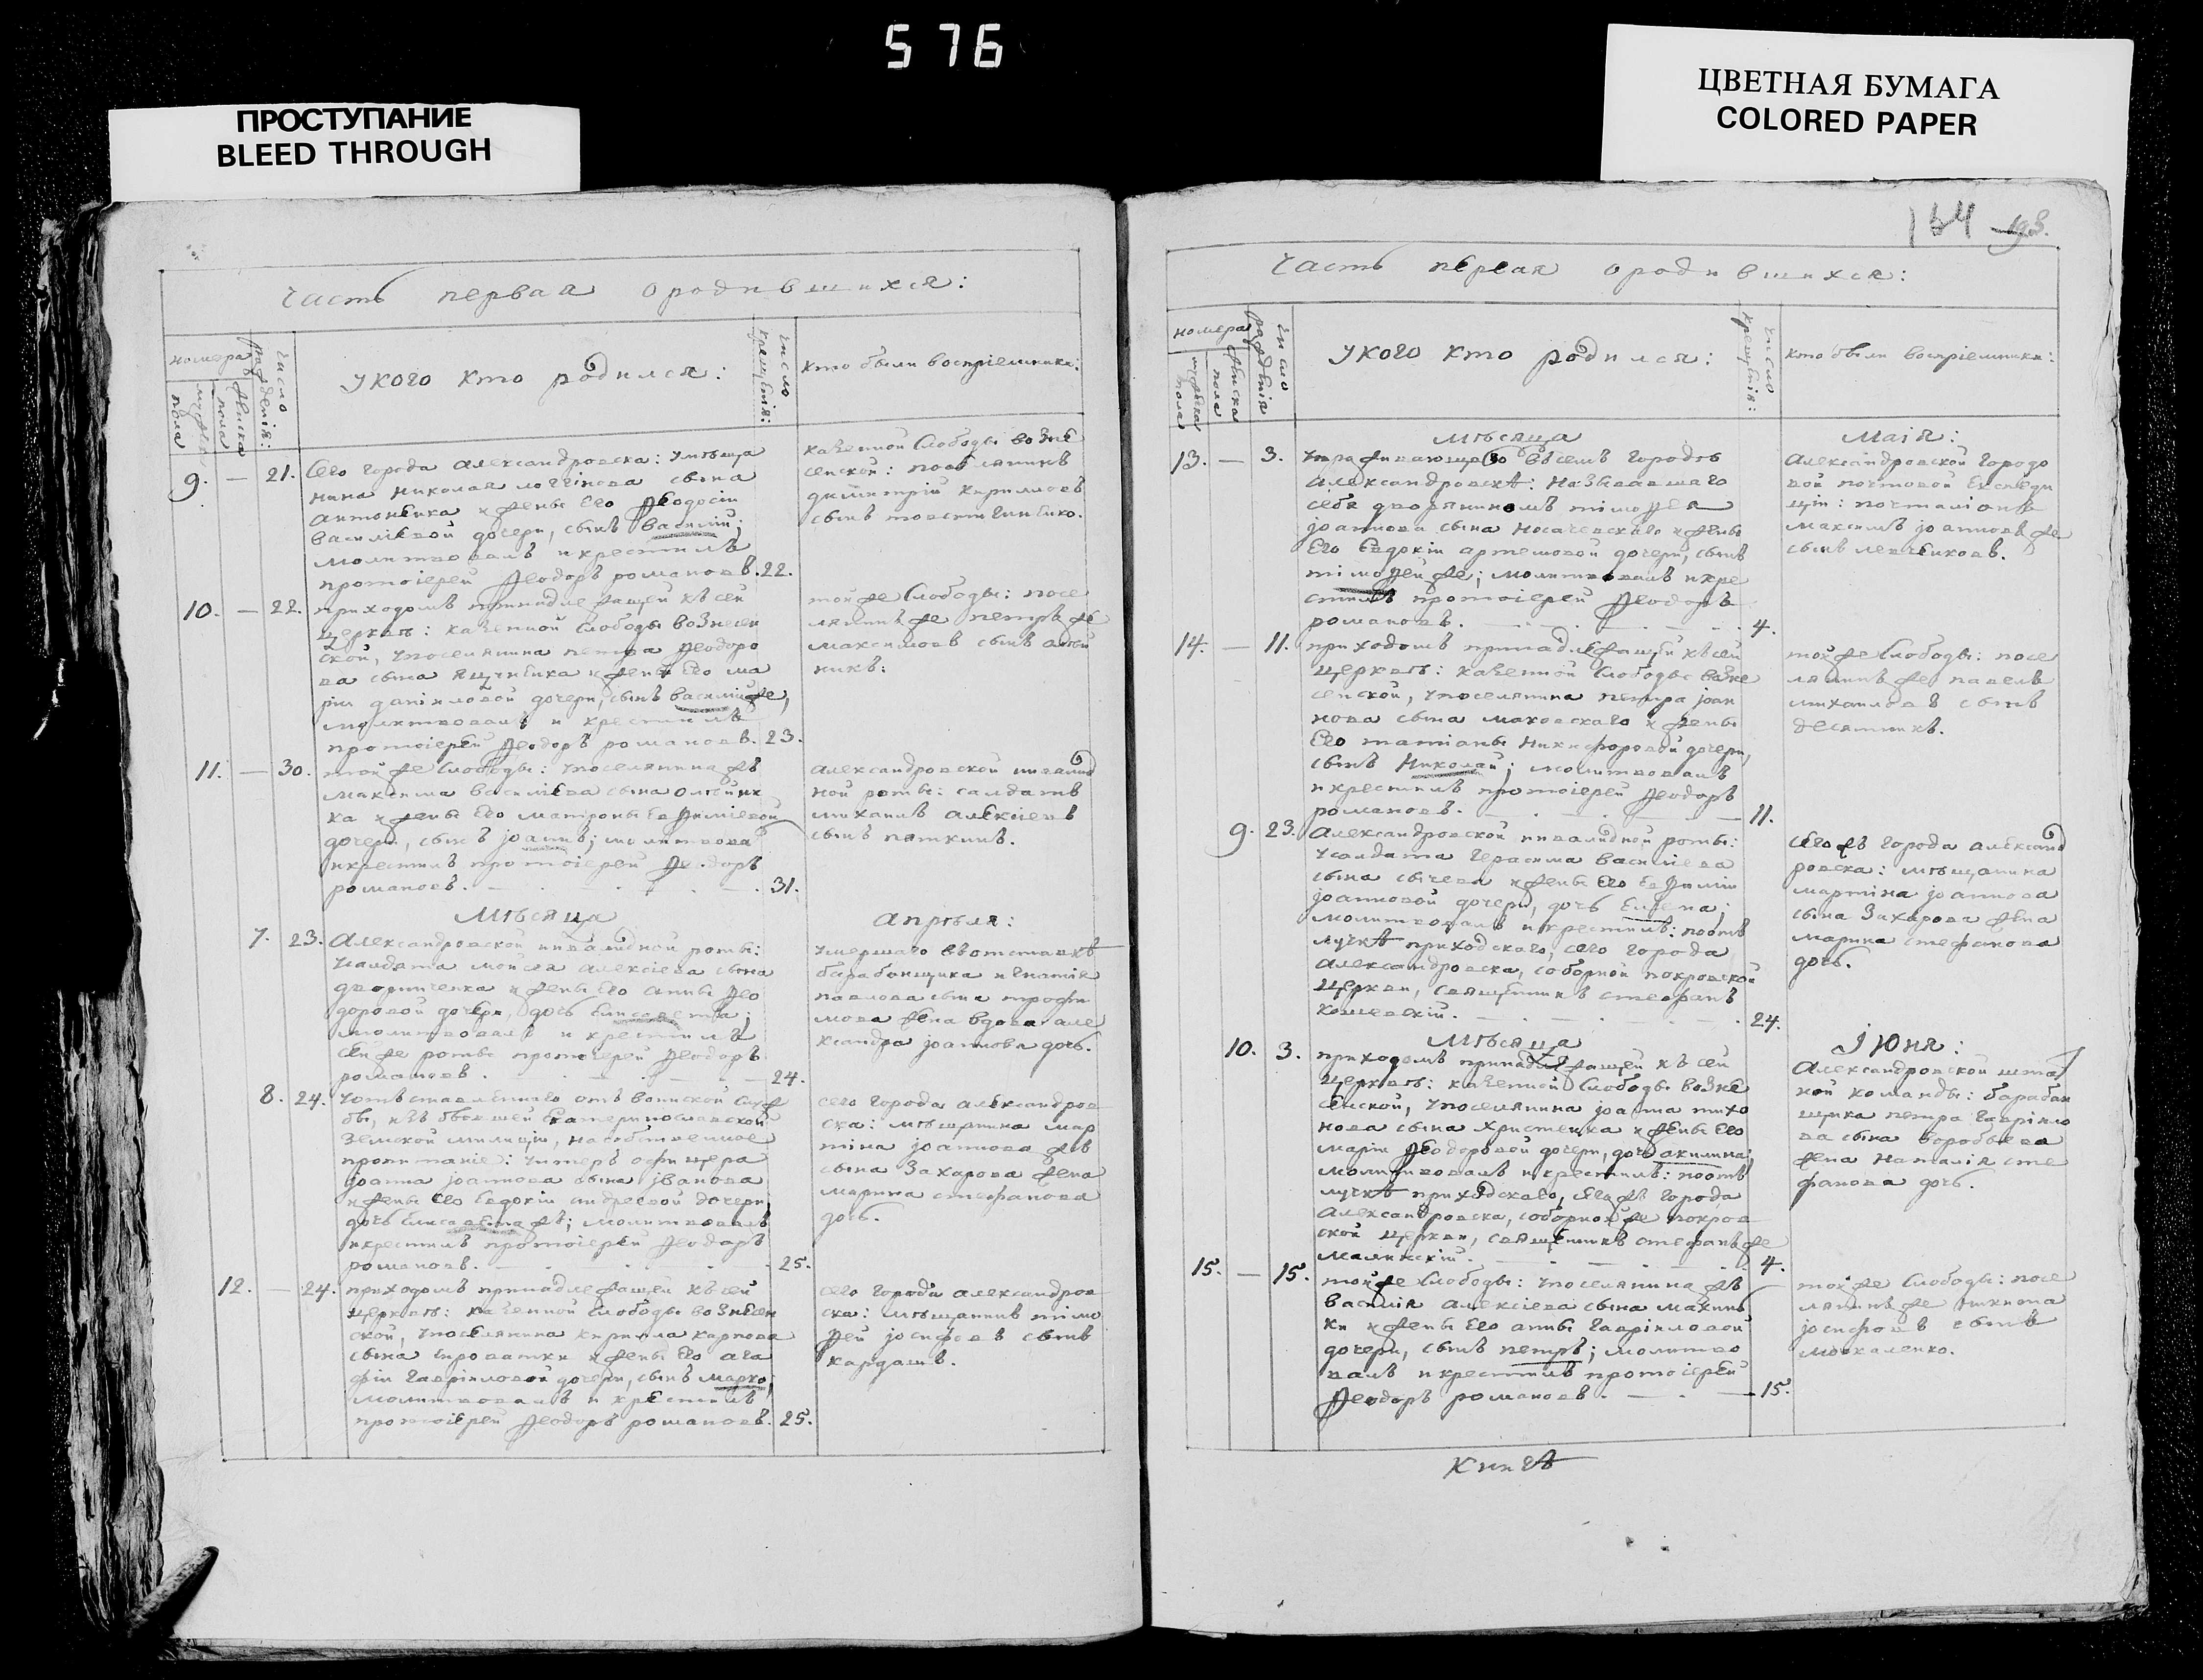 576
ПРОСТУПАНИЕ
BLEED THROUGH
ЦВЕТНАЯ БУМАГА
COLORED PAPER
Часть первая ородившихся:
номера
мужеска пола
женска пола
число рожденія:
укого кто родился:
число крещенія:
кто были воспріемники:
9. — 21. Сего города александровска: умѣща
нина николая логгінова сына
антоненка и жены Его Ѳеодосіи
василіевой дочери, сынъ василій;
молитвовалъ и крестилъ
протоіерей Ѳеодоръ романовъ. 22.
казенной Слободы возне
сенской: поселянинъ
димитрій кириловъ
сынъ
10. — 22. приходомъ принадлежащей къ сей
церквѣ: казенной Слободы вознесен
ской, упоселянина петра Ѳеодоро
ва сына ященка и жены Его ма
ріи даніиловой дочери, сынъ василій же,
молитвовалъ и крестилъ
протоіерей Ѳеодоръ романовъ. 23.
той же Слободы: посе
лянинъ же петръ же
максимовъ сынъ
никъ:
11. — 30. той же Слободы: упоселянина жъ
максима василіева сына олейни
ка и жены Его матроны Евѳиміевой
дочери, сынъ јоаннъ; молитвова
и крестилъ протоіерей Ѳеодоръ
романовъ. 31.
александровской инвалид
ной роты: салдатъ
михаилъ алексіевъ
сынъ пяткинъ.
Мѣсяца апрѣля:
7. 23. Александровской инвалидной роты:
усалдата мойсея алексіева сына
дворниченка и жены Его анны Ѳео
доровой дочери, дочь Елисавета;
молитвовалъ и крестилъ
сей же роты протоіерей Ѳеодоръ
романовъ. 24.
умершаго вотставкѣ
барабанщика игнатія
павлова сына трофи
мова жена вдова але
ксандра јоаннова дочь.
8. 24. уотставленнаго отъ воинской служ
бы, изъ бывшей Екатеринославской
Земской милиціи, насобственное
пропитаніе: унтеръ офицера
јоанна јоаннова сына јванова
и жены Его Евдокіи андреевой дочери
дочь Елисавета жъ; молитвовалъ
и крестилъ протоіерей Ѳеодоръ
романовъ. 25.
сего города александров
ска: мѣщанина мар
тина јоаннова жъ
сына Захарова жена
марина стефанова
дочь.
12. — 24. приходомъ принадлежащей къ сей
церквѣ: казенной Слободы вознесен
ской, упоселянина кирила карпова
сына сыроватки и жены Его ага
фіи гавріиловой дочери, сынъ марко,
молитвовалъ и крестилъ
протоіерей Ѳеодоръ романовъ. 25.
сего города александров
ска: мѣщанинъ тімо
Ѳей јосифовъ сынъ
кардашъ.
154 193.
Часть первая ородившихся:
номера
мужеска пола
женска пола
число рожденія
укого кто родился:
число крещенія:
кто были воспріемники:
Мѣсяца Маія:
13. — 3. упраживающаго въсемъ городѣ
александровскѣ: называвшаго
себя дворяниномъ тімоѲея
јоаннова сына носачевскаго и жены
Его Евдокіи артемовой дочери, сынъ
тімоѲей же; молитвовалъ и кре
стилъ протоіерей Ѳеодоръ
романовъ. 4.
Александровской городо
вой почтовой Експеди
ціи: почталіонъ
максимъ јоанновъ же
сынъ левченковъ.
14. — 11. приходомъ принадлежащей къ сей
церквѣ: казенной Слободы возне
сенской, упоселянина петра јоан
нова сына маковскаго и жены
Его татіаны никифоровой дочери,
сынъ николай; молитвовалъ
и крестилъ протоіерей Ѳеодоръ
романовъ. 11.
той же Слободы: посе
лянинъ же павелъ
михаиловъ сынъ
десятникъ.
9. 23. Александровской инвалидной роты:
усалдата герасима василіева
сына сычева и жены Его Евѳиміи
јоанновой дочери, дочь Елена;
молитвовалъ и крестилъ: поотъ
лучкѣ приходскаго, сего города
александровска, соборной покровской
церкви, священникъ стефанъ
24.
сего жъ города александ
ровска: мѣщанина
мартіна јоаннова
сына Захарова жена
марина стефанова
дочь.
Мѣсяца Јюня:
10. 3. приходомъ принадлежащей къ сей
церквѣ: казенной Слободы возне
сенской, упоселянина јоанна тихо
нова сына христенка и жены Его
маріи Ѳеодоровой дочери, дочь акилина;
молитвовалъ и крестилъ: поотъ
лучкѣ приходскаго, сего жъ города
александровска, соборной же покров
ской церкви, священникъ стефанъ же
4.
Александровской штат
ной команды: барабан
щика петра гавріило
ва сына воробьева
жена наталія сте
фанова дочь.
15. — 15. той же Слободы: упоселянина жъ
василія алексіева сына махинь
ки и жены Его анны гавріиловой
дочери, сынъ петръ; молитво
валъ и крестилъ протоіерей
Ѳеодоръ романовъ. 15.
той же Слободы: посе
лянинъ же никита
јосифовъ сынъ
москаленко.
книгѣ